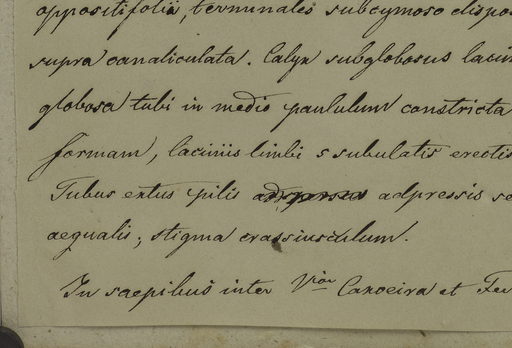 oppositifolii, terminales subcymoso dispo
supra canaliculata. Calyx subglobosus lacin
globosa tubi in medio paululum constricta
formam, laciniis limbi 5 subulatis erectis
Tubus extus pilis adpressis se
aequalis; stigma crassiusculum.
In saepibus inter Vior Canoeira et Fer